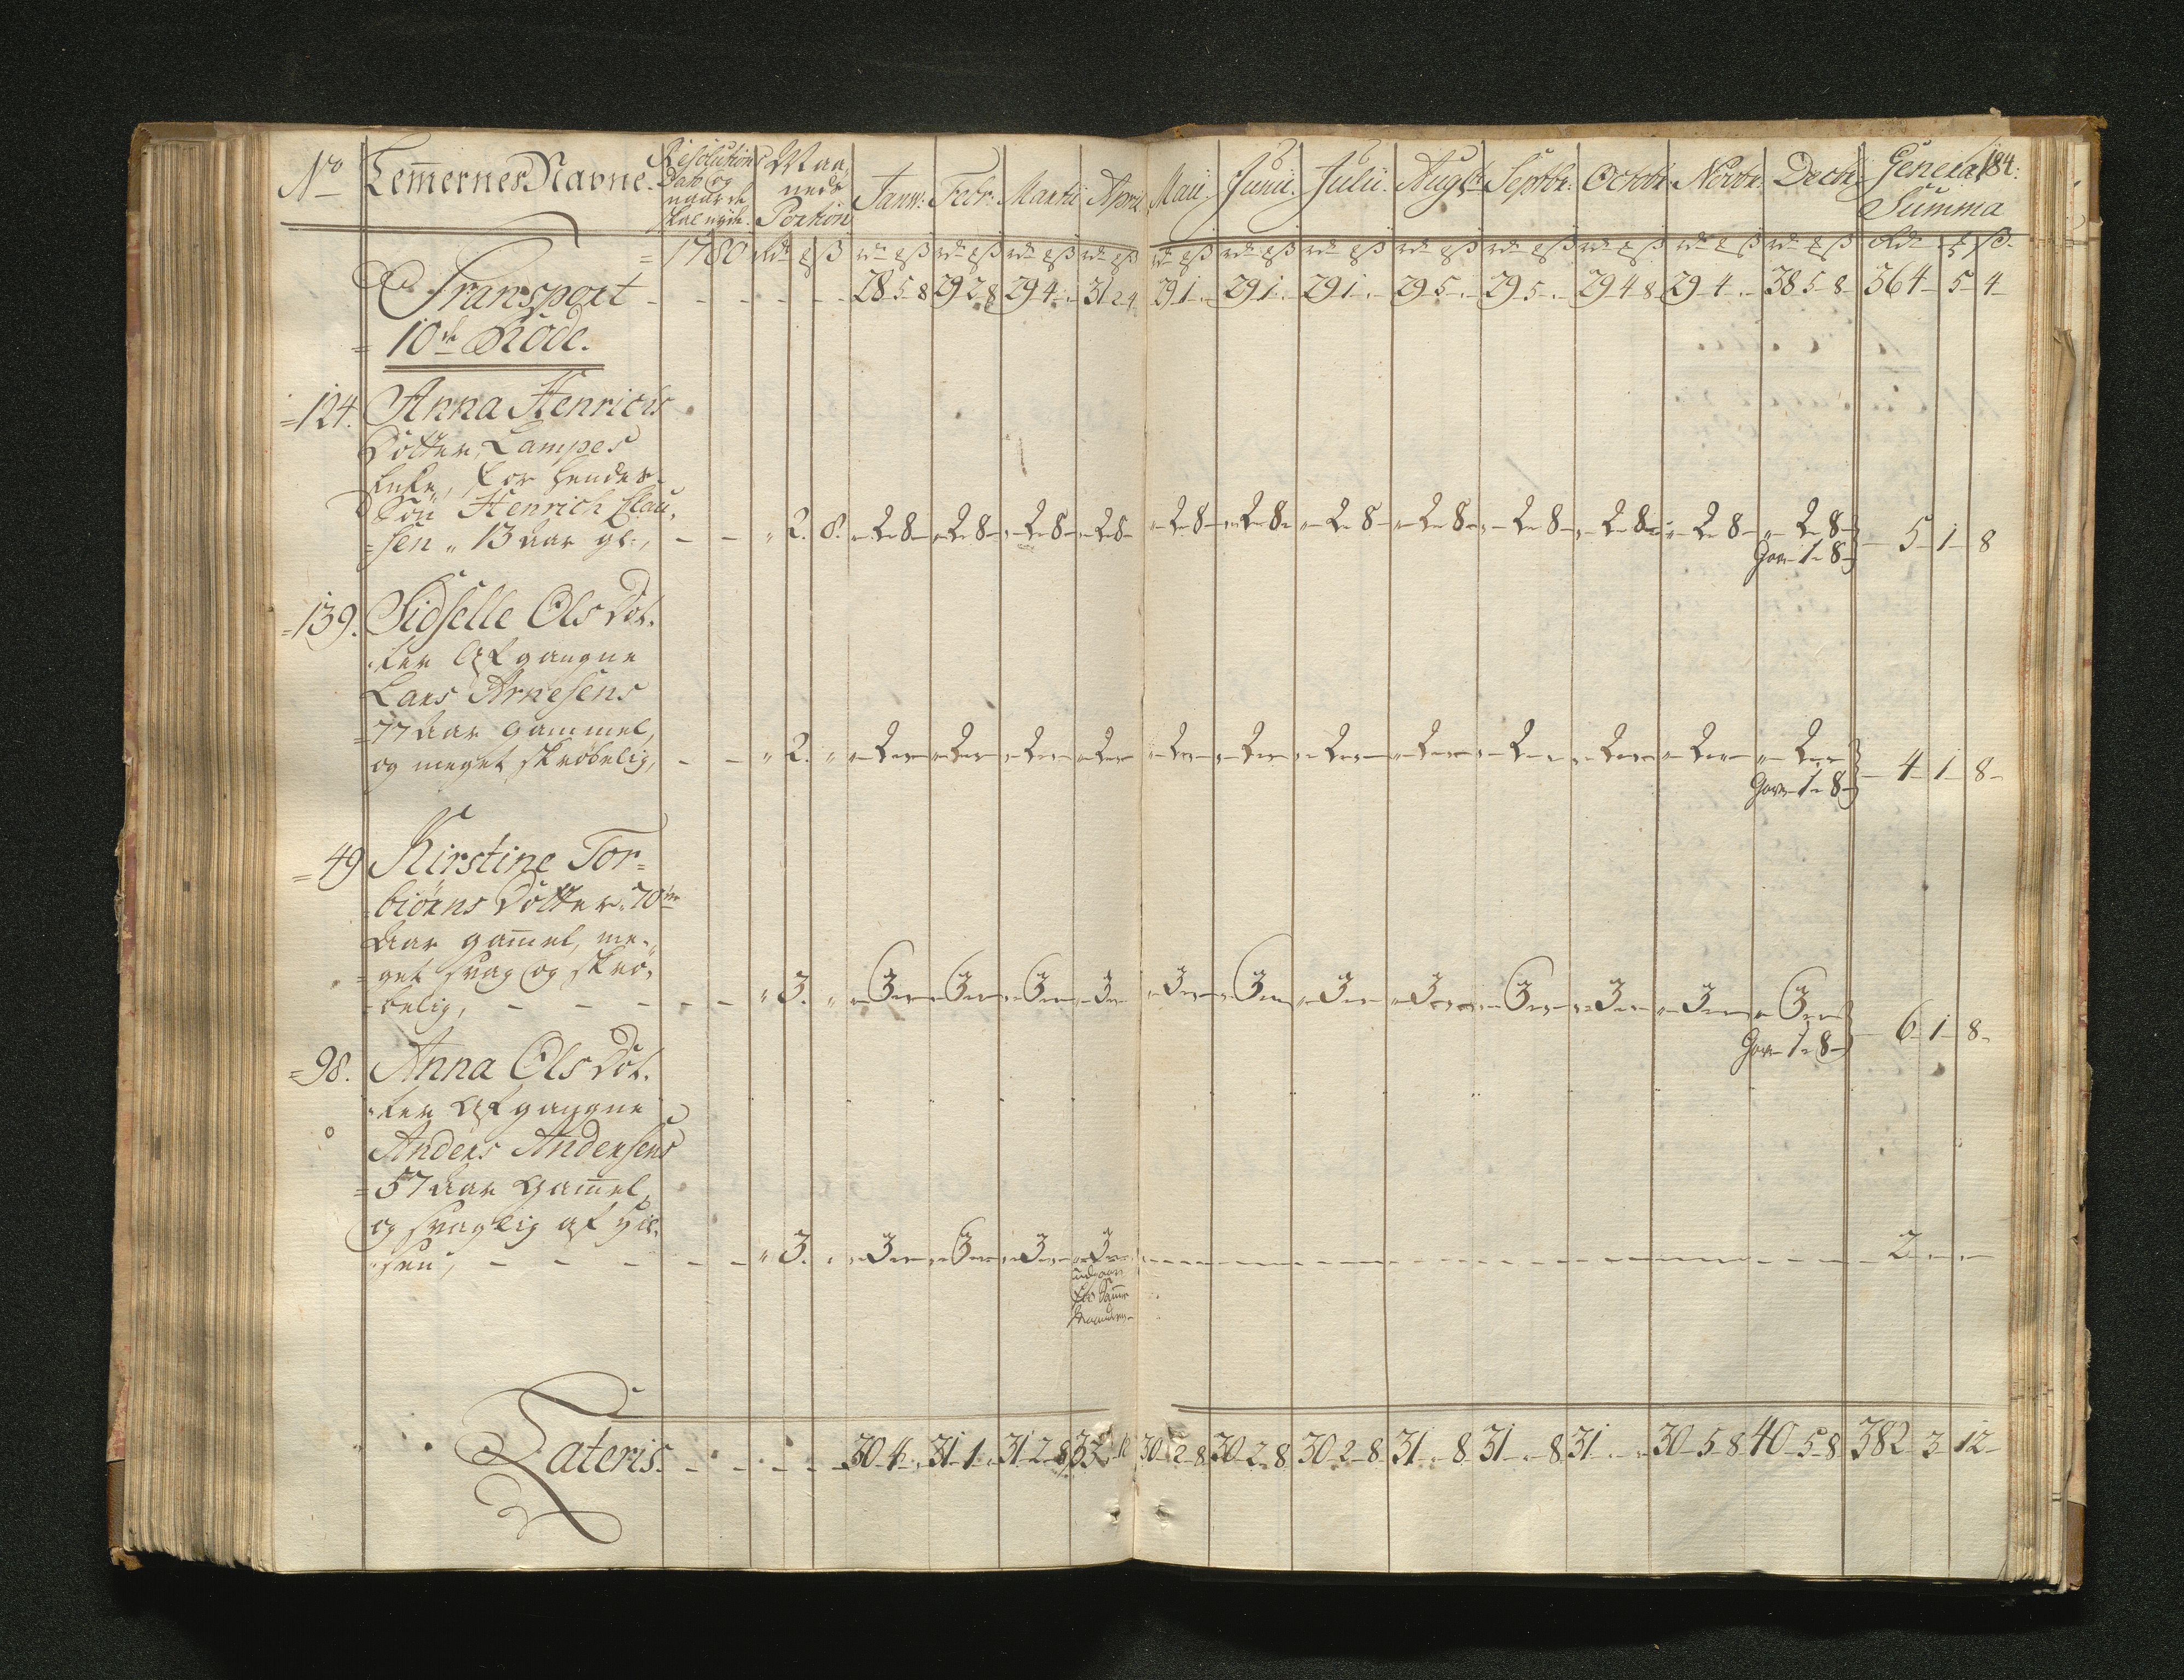 184.
No Lemmernes Navne. Resolutions Dato og naar de skal nyde Maaneds Portion Janv: Febr: Martii April Maii Junii Julii Augst: Septbr: Octobr: Novbr: Decbr: General Summa
=1780 rdr ꝑ ß rdr ꝑ ß rdr ꝑ ß rdr ꝑ ß rdr ꝑ ß rdr ꝑ ß rdr ꝑ ß rdr ꝑ ß rdr ꝑ ß rdr ꝑ ß rdr ꝑ ß rdr ꝑ ß rdr ꝑ ß rdr ꝑ ß.
Transport - - - - - 28 5 8 29 2 8 29 4 „ 31 2 4 29 1 „ 29 1 „ 29 1 „ 29 5 „ 29 5 „ 29 4 8 29 4 „ 38 5 8 364 5 4
= 10de Rode.
=124. Anna Henrichs
Dotter, Lampes
Enke, for hendes
Søn Henrich Clau,
=sen „ 13 aar gl:, - - „ 2. 8. „ 2 8 „ 2 8 „ 2 8 „ 2 8 „ 2 8 „ 2 8 „ 2 8 „ 2 8 „ 2 8 „ 2 8 „ 2 8 „ 2 8
1 8 5 1 8
=139. Sidselle Ols Dot.
ter Afgangne
Lars Arnesens
=77 aar gammel,
og meget skrøbelig, - - „ 2. „ „ 2 „ „ 2 „ „ 2 „ „ 2 „ „ 2 „ „ 2 „ „ 2 „ „ 2 „ „ 2 „ „ 2 „ „ 2 „ „ 2 „
1 8 4 1 8
=49 Kirstine Tor=
biørns Dotter. 70
aar gam̄el, me-
get svag og skrø,
belig, - - - - - „ 3. „ „ 3 „ „ 3 „ „ 3 „ „ 3 „ „ 3 „ „ 3 „ „ 3 „ „ 3 „ „ 3 „ „ 3 „ „ 3 „ „ 3 „
1 8 6 1 8
=98. Anna Ols Dot.
ter Afgangne
Anders Andersens
=57 aar Gam̄el,
og svaglig af Hil.
sen, - - - - - „ 3. „ „ 3 „ „ 3 „ „ 3 „ „ 3 „ - - - - 2 „ „
Lateris. - - - - 30 4 „ 31 1 „ 31 2 8 30 2 8 30 2 8 30 2 8 31 „ 8 31 „ 8 31 „ „ 30 5 8 40 5 8 382 3 12